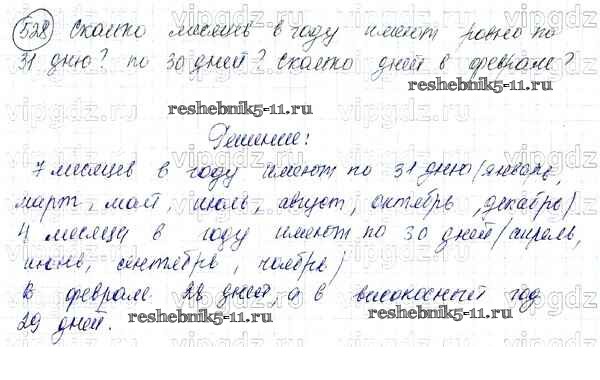 528 Сколько месяцев в году имеют ровно по
31 дню? по 30 дней? Сколько дней в феврале?
reshebnik5-11.ru
reshebnik5-11.ru
Решение:
7 месяцев в году имеют по 31 дню (январь,
март, май, июль, август, октябрь, декабрь)
4 месяца в году имеют по 30 дней (апрель,
июнь, сентябрь, ноябрь)
В феврале 28 дней, а в високосный год
29 дней.
reshebnik5-11.ru
reshebnik5-11.ru
vipgdz